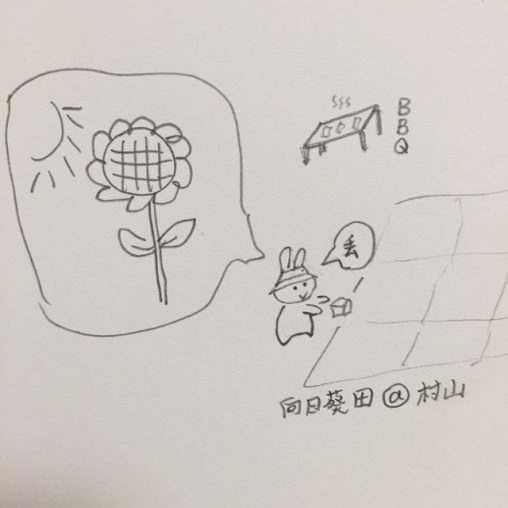 B
B
Q
丢
向日葵田@村山